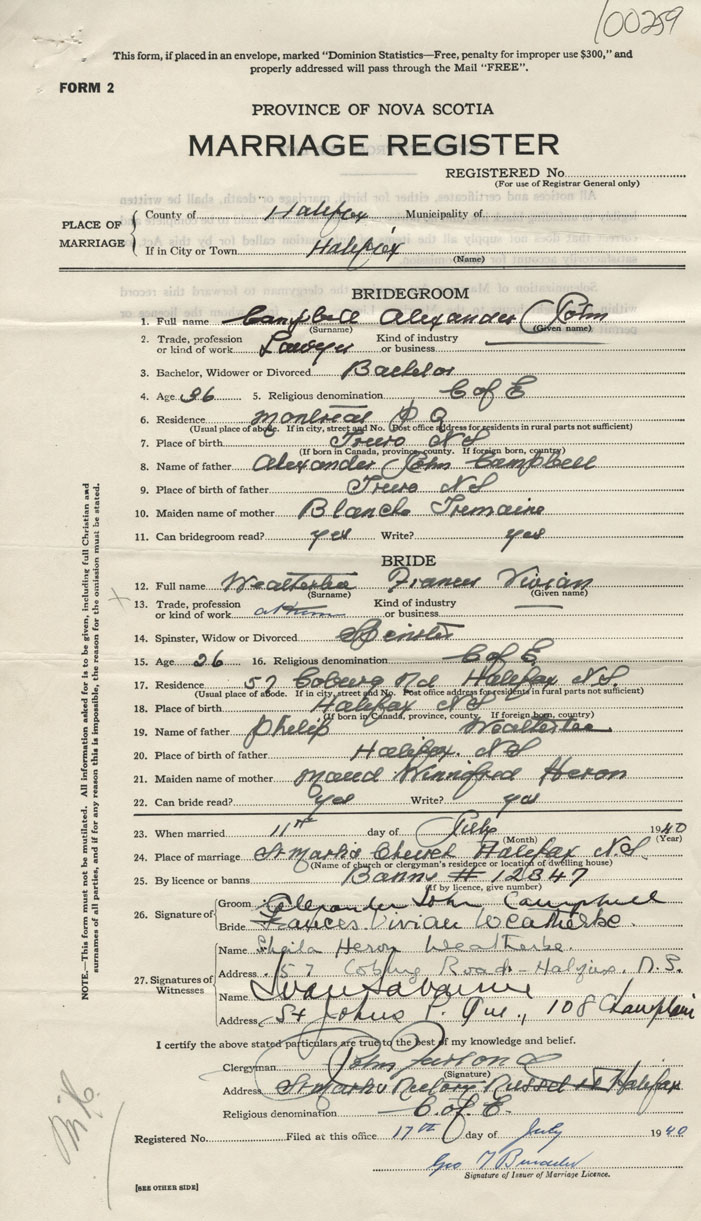 100259
This form, if placed in an envelope, marked "Dominion Statistics—Free, penalty for improper use $300," and
properly addressed will pass through the Mail "FREE".
FORM 2
PROVINCE OF NOVA SCOTIA
MARRIAGE REGISTER
REGISTERED No.
(For use of Registrar General only)
PLACE OF MARRIAGE
County of Halifax Municipality of
If in City or Town Halifax
(Name)
BRIDEGROOM
1. Full name Campbell Alexander John
(Surname) (Given name)
2. Trade, profession or kind of work Lawyer Kind of industry or business
3. Bachelor, Widower or Divorced Bachelor
4. Age 26 5. Religious denomination C of E
6. Residence Montreal P Q
(Usual place of abode. If in city, street and No. Post office address for residents in rural parts not sufficient)
7. Place of birth Truro N S
(If born in Canada, province, county. If foreign born, country)
8. Name of father Alexander John Campbell
9. Place of birth of father Truro N S
10. Maiden name of mother Blanche Tremaine
11. Can bridegroom read? yes Write? yes
BRIDE
12. Full name Weatherbe Frances Vivian
(Surname) (Given name)
13. Trade, profession or kind of work at home Kind of industry or business
14. Spinster, Widow or Divorced Spinster
15. Age 26 16. Religious denomination C of E
17. Residence 57 Coburg Rd Halifax N.S.
(Usual place of abode. If in city, street and No. Post office address for residents in rural parts not sufficient)
18. Place of birth Halifax N S
(If born in Canada, province, county. If foreign born, country)
19. Name of father Philip Weatherbe
20. Place of birth of father Halifax. N S
21. Maiden name of mother Maud Winnifred Heron
22. Can bride read? yes Write? yes
23. When married 11th day of July 1940
(Month) (Year)
24. Place of marriage St Mark's Church Halifax N.S.
(Name of church or clergyman's residence or location of dwelling house)
25. By licence or banns Banns # 12847
(If by licence, give number)
26. Signature of
Groom Alexander John Campbell
Bride Frances Vivian Weatherbe.
27. Signatures of Witnesses
Name Sheila Heron Weatherbe.
Address 57 Coburg Road - Halifax. N.S.
Name
Address St Johns P. Que., 108 Champlain
I certify the above stated particulars are true to the best of my knowledge and belief.
Clergyman John
(Signature)
Address St Mark's Rectory Russel St Halifax
Religious denomination C. of E.
Registered No. Filed at this office 17th day of July 1940
Geo
Signature of Issuer of Marriage Licence.
[SEE OTHER SIDE]
NOTE.—This form must not be mutilated. All information asked for is to be given, including full Christian and
surnames of all parties, and if for any reason this is impossible, the reason for the omission must be stated.